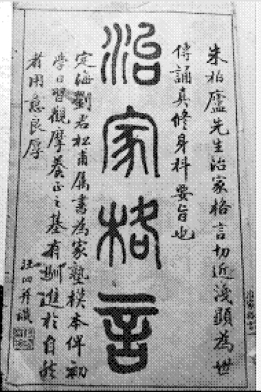 朱柏廬先生治家格言切近淺顯為世
傳誦真修身科要旨也
治家格言
定海劉君松甫属書為家塾模本俾初
學日習觀摩養正之基有斯進於自然
者用意良厚